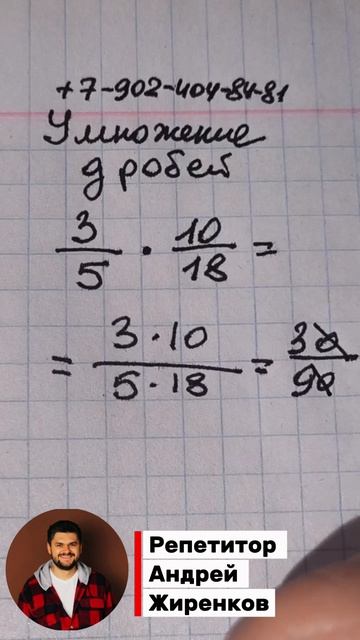 +7-902-404-84-81
Умножение
дробей
3/5 · 10/18 =
= 3·10/5·18 = 30/90
Репетитор
Андрей
Жиренков